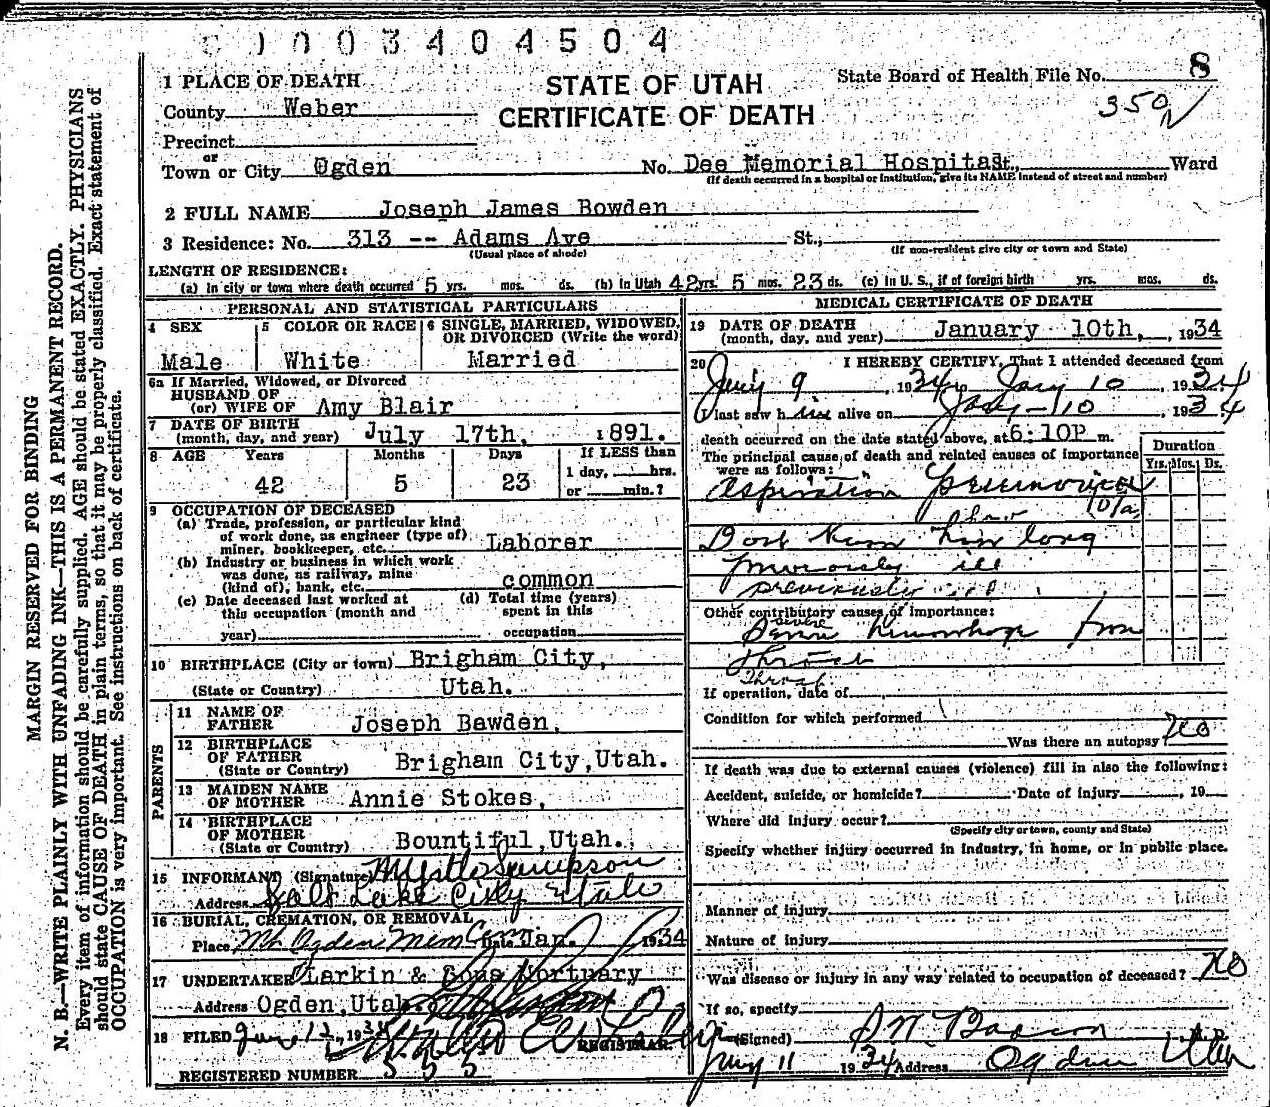 0 1 0 0 3 4 0 4 5 0 4
1 PLACE OF DEATH
STATE OF UTAH
CERTIFICATE OF DEATH
State Board of Health File No. 8
350
County Weber
Precinct
or
Town or City Ogden No. Dee Memorial Hospital St., Ward
(If death occurred in a hospital or institution, give its NAME instead of street and number)
2 FULL NAME Joseph James Bowden
3 Residence: No. 313 -- Adams Ave St.,
(Usual place of abode) (If non-resident give city or town and State)
LENGTH OF RESIDENCE:
(a) In city or town where death occurred 5 yrs. mos. ds. (b) In Utah 42 yrs. 5 mos. 23 ds. (c) In U. S., if of foreign birth yrs. mos. ds.
PERSONAL AND STATISTICAL PARTICULARS
4 SEX
Male
5 COLOR OR RACE
White
6 SINGLE, MARRIED, WIDOWED, OR DIVORCED (Write the word)
Married
6a If Married, Widowed, or Divorced
HUSBAND OF
(or) WIFE OF Amy Blair
7 DATE OF BIRTH
(month, day, and year) July 17th, 1891.
8 AGE Years Months Days If LESS than
1 day, hrs.
42 5 23 or min.?
9 OCCUPATION OF DECEASED
(a) Trade, profession, or particular kind
of work done, as engineer (type of)
miner, bookkeeper, etc. Laborer
(b) Industry or business in which work
was done, as railway, mine
(kind of), bank, etc. common
(c) Date deceased last worked at
this occupation (month and
year)
(d) Total time (years)
spent in this
occupation
10 BIRTHPLACE (City or town) Brigham City,
(State or Country) Utah.
PARENTS
11 NAME OF
FATHER Joseph Bawden,
12 BIRTHPLACE
OF FATHER
(State or Country) Brigham City, Utah.
13 MAIDEN NAME
OF MOTHER Annie Stokes,
14 BIRTHPLACE
OF MOTHER
(State or Country) Bountiful, Utah.
15 INFORMANT (Signature) Myrtle Sampson
Address Salt Lake City Utah
16 BURIAL, CREMATION, OR REMOVAL
Place Mt Ogden Mem Cem Date Jan. 1934
17 UNDERTAKER Larkin & Sons Mortuary
Address Ogden, Utah.
18 FILED 1934
REGISTRAR
REGISTERED NUMBER
MEDICAL CERTIFICATE OF DEATH
19 DATE OF DEATH
(month, day, and year) January 10th, 1934
20 I HEREBY CERTIFY, That I attended deceased from
Jany 9, 1934 to Jany 10, 1934
I last saw him alive on Jany - 10, 1934
death occurred on the date stated above, at 6:10P m.
The principal cause of death and related causes of importance
were as follows:
Duration
Yrs. Mos. Ds.
Aspiration Pneumonia
Dont know how long
previously ill
previously ill
Other contributory causes of importance:
severe
Severe hemorrhage from
Throat
Throat
If operation, date of
Condition for which performed
Was there an autopsy? No
If death was due to external causes (violence) fill in also the following:
Accident, suicide, or homicide? Date of injury , 19
Where did injury occur?
(Specify city or town, county and State)
Specify whether injury occurred in industry, in home, or in public place.
Manner of injury
Nature of injury
Was disease or injury in any way related to occupation of deceased? No
If so, specify
(Signed)
Jany 11 1934 Address Ogden Utah
MARGIN RESERVED FOR BINDING
N. B.—WRITE PLAINLY WITH UNFADING INK—THIS IS A PERMANENT RECORD.
Every item of information should be carefully supplied. AGE should be stated EXACTLY. PHYSICIANS
should state CAUSE OF DEATH in plain terms, so that it may be properly classified. Exact statement of
OCCUPATION is very important. See instructions on back of certificate.